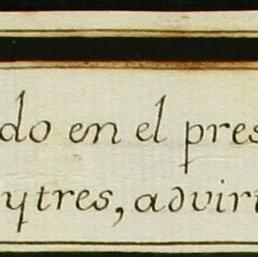 do en el pres
ytres, advirt